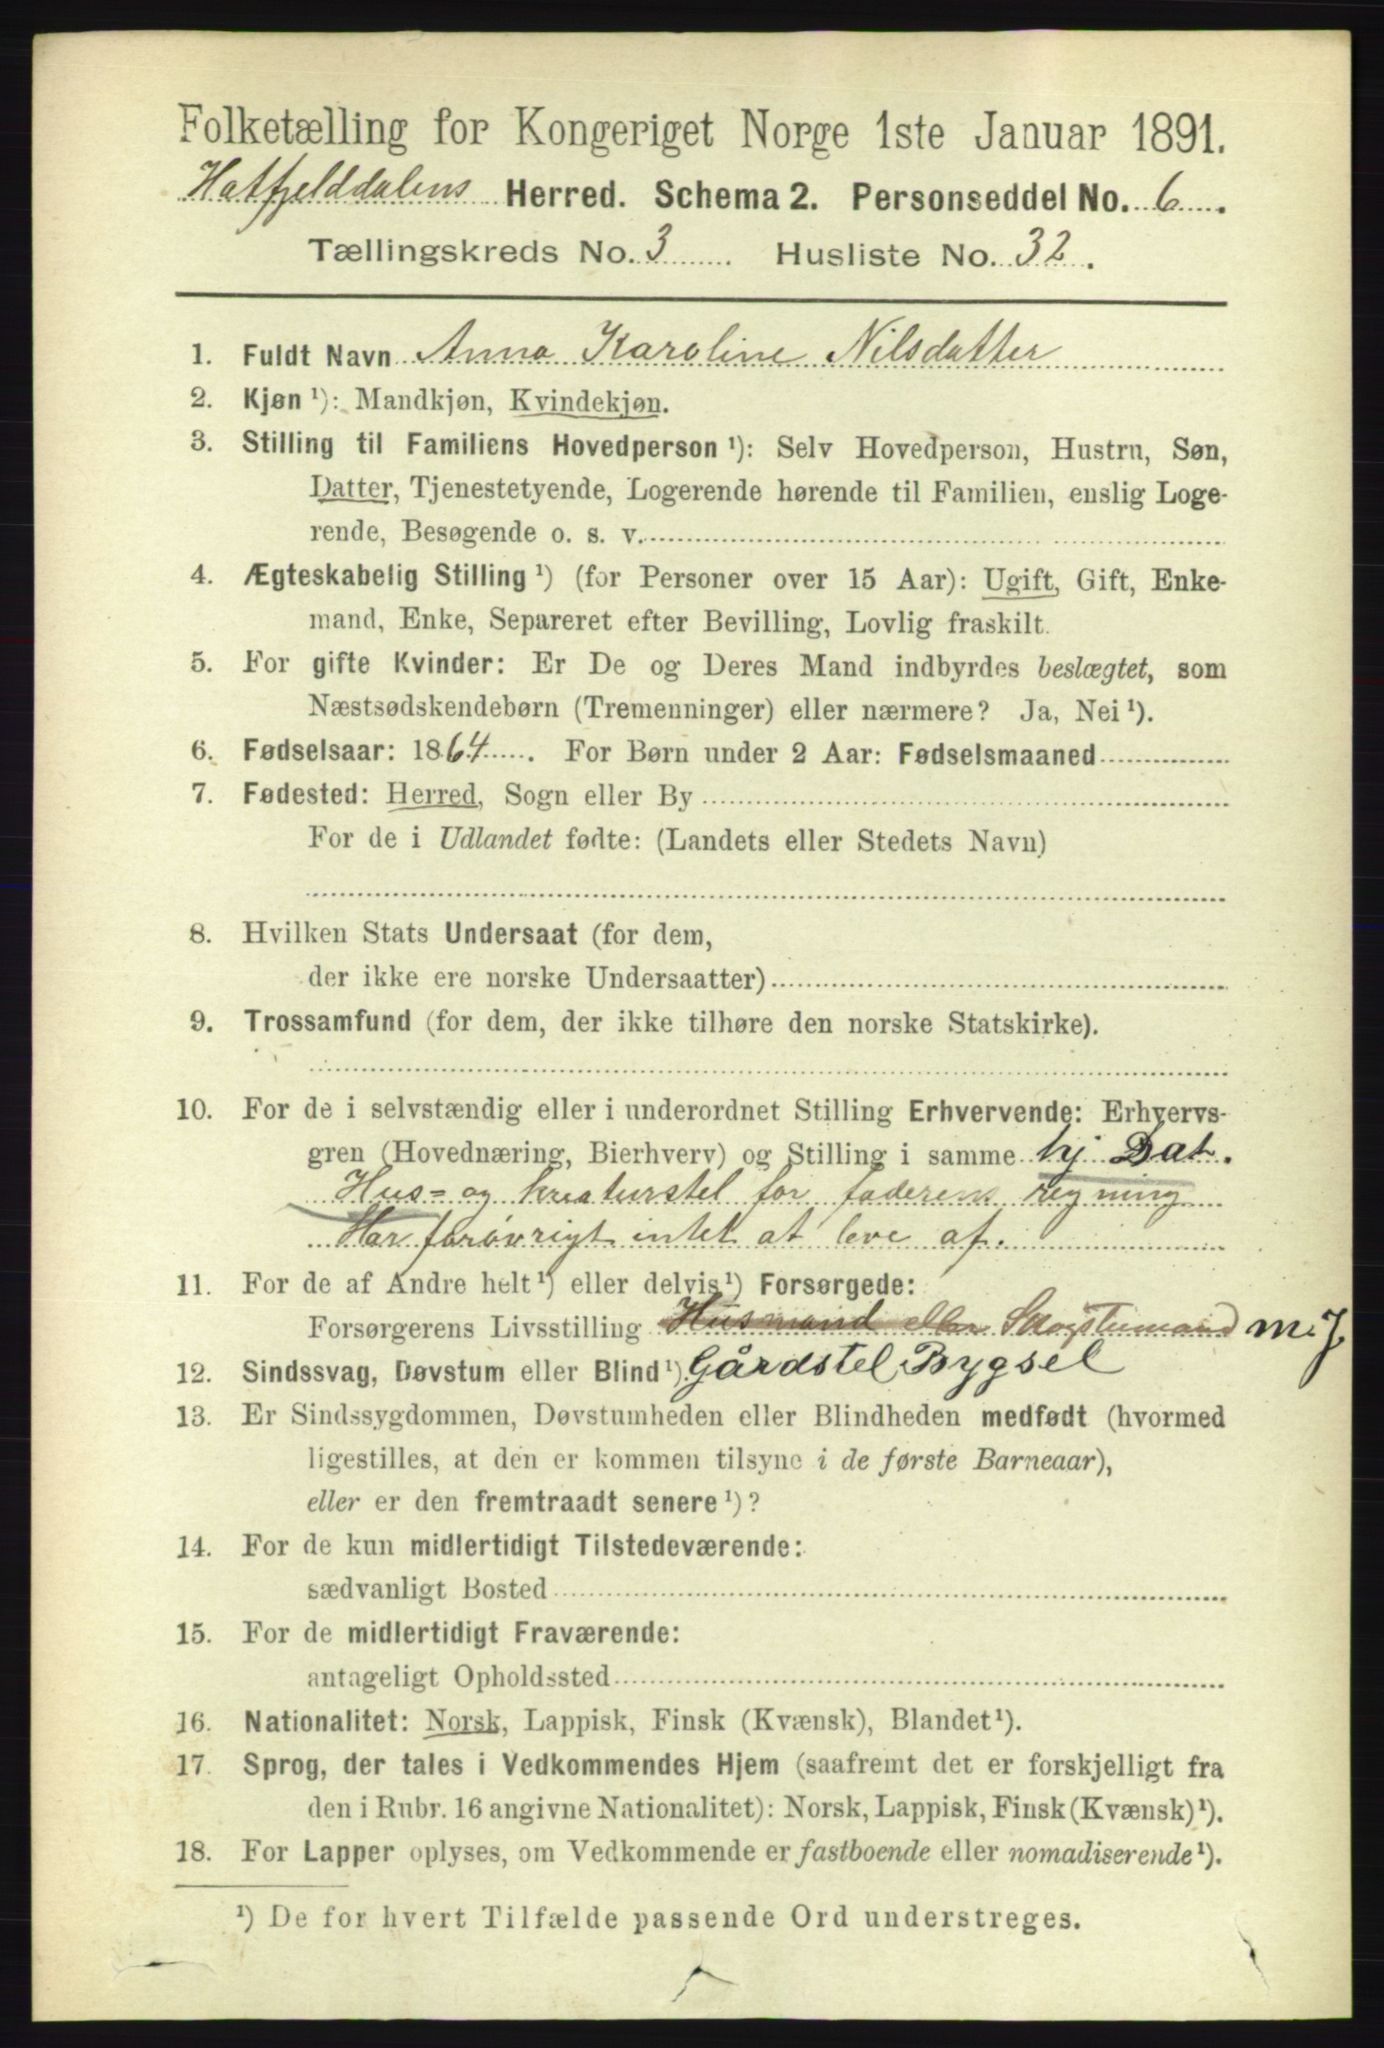 Folketælling for Kongeriget Norge 1ste Januar 1891.
Hatfjelddalens Herred. Schema 2. Personseddel No. 6.
Tællingskreds No. 3 Husliste No. 32.
1. Fuldt Navn Anna Karoline Nilsdatter
2. Kjøn ¹): Mandkjøn, Kvindekjøn.
3. Stilling til Familiens Hovedperson ¹): Selv Hovedperson, Hustru, Søn,
Datter, Tjenestetyende, Logerende hørende til Familien, enslig Loge-
rende, Besøgende o. s. v.
4. Ægteskabelig Stilling ¹) (for Personer over 15 Aar): Ugift, Gift, Enke-
mand, Enke, Separeret efter Bevilling, Lovlig fraskilt.
5. For gifte Kvinder: Er De og Deres Mand indbyrdes beslægtet, som
Næstsødskendebørn (Tremenninger) eller nærmere? Ja, Nei ¹).
6. Fødselsaar: 1864. For Børn under 2 Aar: Fødselsmaaned
7. Fødested: Herred, Sogn eller By
For de i Udlandet fødte: (Landets eller Stedets Navn)
8. Hvilken Stats Undersaat (for dem,
der ikke ere norske Undersaatter)
9. Trossamfund (for dem, der ikke tilhøre den norske Statskirke).
10. For de i selvstændig eller i underordnet Stilling Erhvervende: Erhvervs-
gren (Hovednæring, Bierhverv) og Stilling i samme hj Dat.
Hus- og kreaturstel for faderens regning
Har forøvrigt intet at leve af.
11. For de af Andre helt ¹) eller delvis ¹) Forsørgede:
Forsørgerens Livsstilling Husmand eller m. J
12. Sindssvag, Døvstum eller Blind ¹). Gårdstel Bygsel
13. Er Sindssygdommen, Døvstumheden eller Blindheden medfødt (hvormed
ligestilles, at den er kommen tilsyne i de første Barneaar),
eller er den fremtraadt senere ¹)?
14. For de kun midlertidigt Tilstedeværende:
sædvanligt Bosted
15. For de midlertidigt Fraværende:
antageligt Opholdssted
16. Nationalitet: Norsk, Lappisk, Finsk (Kvænsk), Blandet ¹).
17. Sprog, der tales i Vedkommendes Hjem (saafremt det er forskjelligt fra
den i Rubr. 16 angivne Nationalitet): Norsk, Lappisk, Finsk (Kvænsk) ¹).
18. For Lapper oplyses, om Vedkommende er fastboende eller nomadiserende ¹).
¹) De for hvert Tilfælde passende Ord understreges.